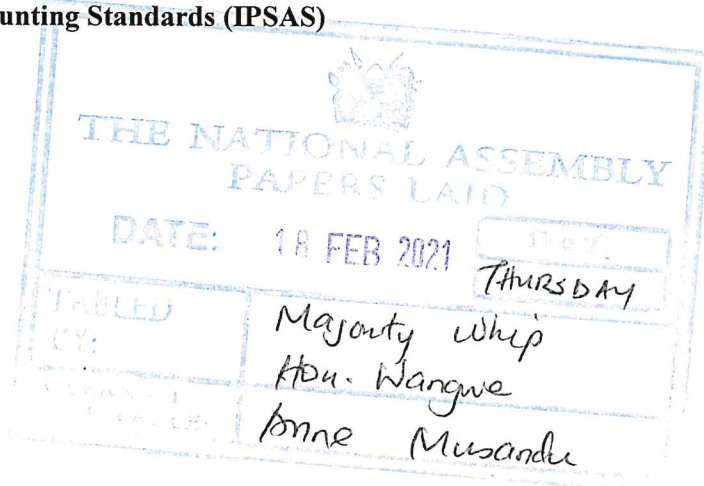 unting Standards (IPSAS)
THE NATIONAL ASSEMBLY
PAPERS LAID
DATE: 18 FEB 2021 DAY.
THURSDAY
TABLED
BY:
Majority Whip
Hon. Wangwe
Anne Musandu